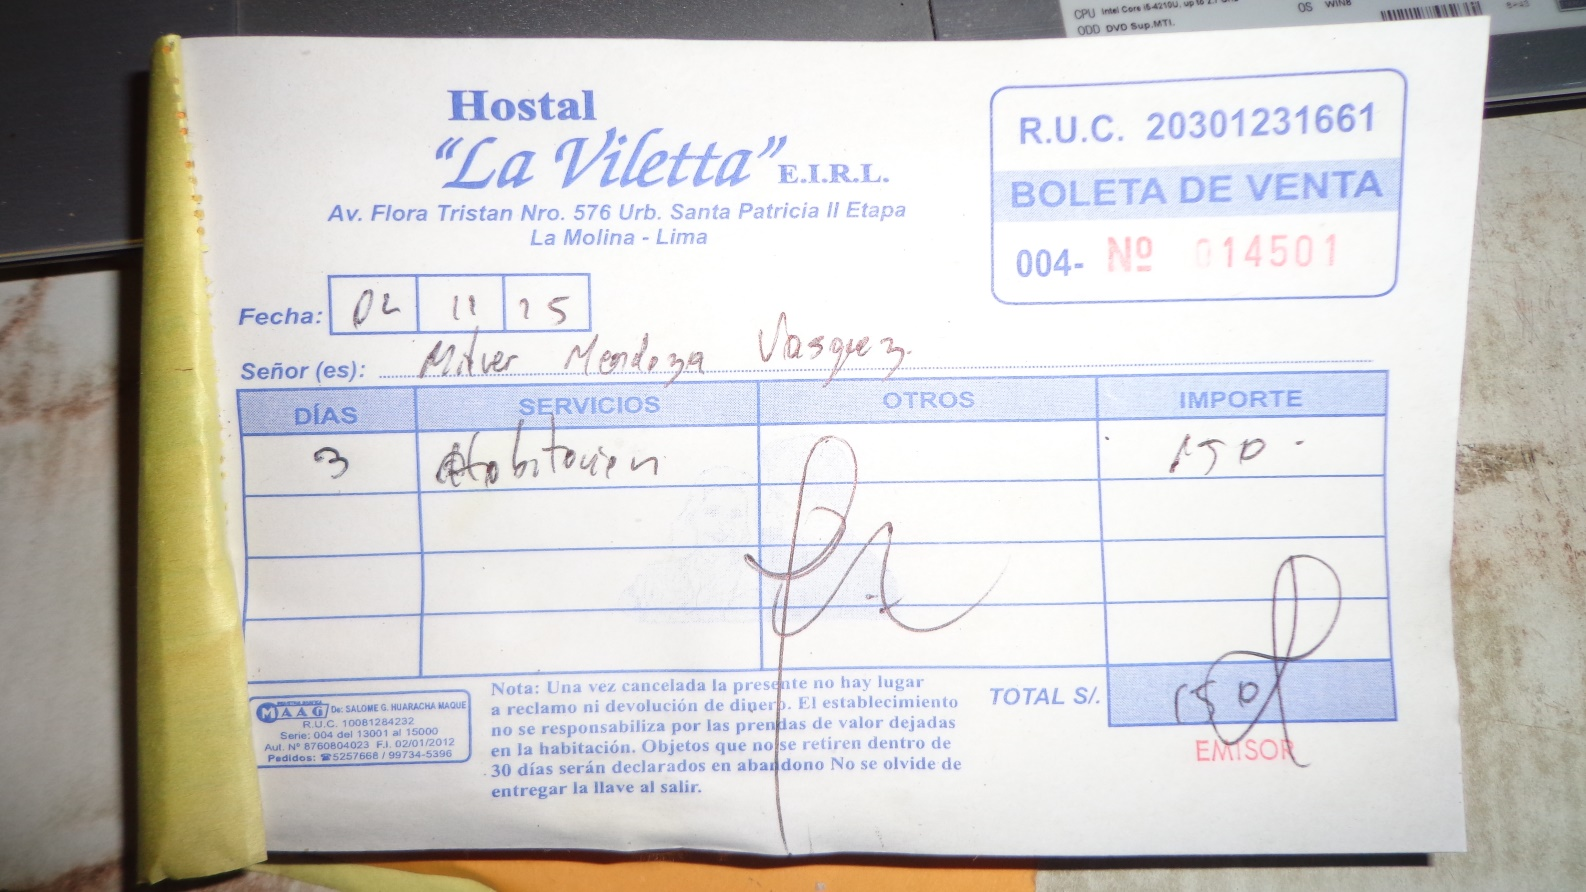 CPU Intel Core i5-4210U, up to 2.7 GHz
OS WIN8
ODD DVD Sup.MTI.
Hostal
"La Viletta" E.I.R.L.
Av. Flora Tristan Nro. 576 Urb. Santa Patricia II Etapa
La Molina - Lima
R.U.C. 20301231661
BOLETA DE VENTA
004- Nº 014501
Fecha: 02 11 15
Señor (es): Milver Mendoza Vasquez.
DÍAS SERVICIOS OTROS IMPORTE
3 Habitacion 150 -
TOTAL S/. 150
EMISOR
MAAG De: SALOME G. HUARACHA MAQUE
R.U.C. 10081284232
Serie: 004 del 13001 al 15000
Aut. Nº 8760804023 F.I. 02/01/2012
Pedidos: ☎5257668 / 99734-5396
Nota: Una vez cancelada la presente no hay lugar
a reclamo ni devolución de dinero. El establecimiento
no se responsabiliza por las prendas de valor dejadas
en la habitación. Objetos que no se retiren dentro de
30 días serán declarados en abandono No se olvide de
entregar la llave al salir.